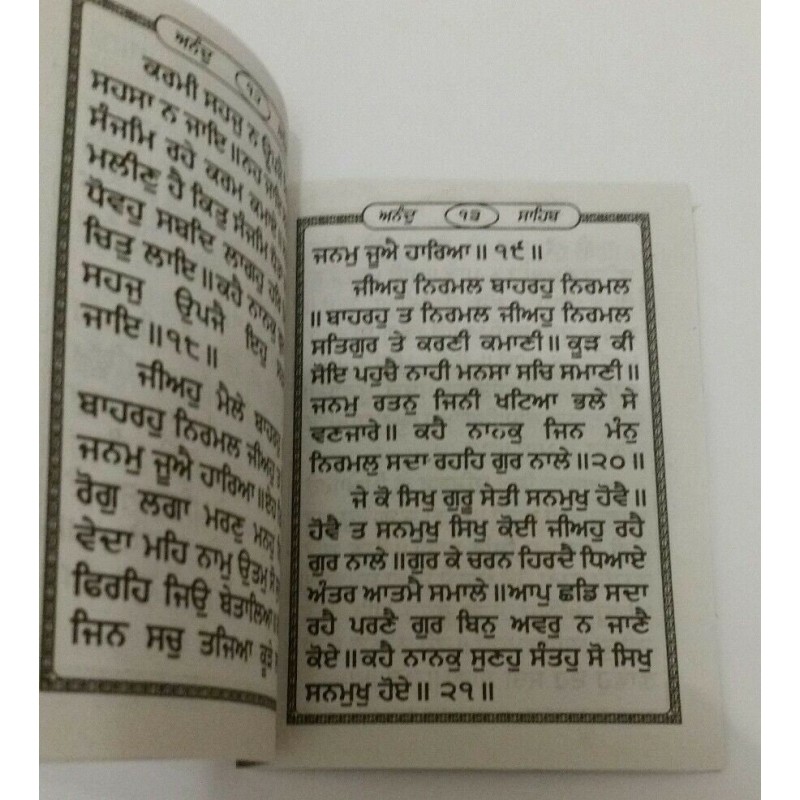 ਅਨੰਦੁ
ਕਰਮੀ ਸਹਜੁ ਨ
ਸਹਸਾ ਨ ਜਾਇ॥ਨਹ
ਸੰਜਮਿ ਰਹੇ ਕਰਮ ਕਮਾਏ
ਮਲੀਣੁ ਹੈ ਕਿਤੁ ਸੰਜਮਿ
ਧੋਵਹੁ ਸਬਦਿ ਲਾਗਹੁ
ਚਿਤੁ ਲਾਇ॥ਕਹੈ ਨਾਨਕੁ
ਸਹਜੁ ਉਪਜੈ ਇਹੁ
ਜਾਇ॥੧੮॥
ਜੀਅਹੁ ਮੈਲੇ
ਬਾਹਰਹੁ ਨਿਰਮਲ ਜੀਅਹੁ
ਜਨਮੁ ਜੂਐ ਹਾਰਿਆ॥
ਰੋਗੁ ਲਗਾ ਮਰਣੁ
ਵੇਦਾ ਮਹਿ ਨਾਮੁ ਉਤਮੁ
ਫਿਰਹਿ ਜਿਉ ਬੇਤਾਲਿਆ
ਜਿਨ ਸਚੁ ਤਜਿਆ ਕੂੜੇ
ਅਨੰਦੁ ੧੩ ਸਾਹਿਬ
ਜਨਮੁ ਜੂਐ ਹਾਰਿਆ॥ ੧੯॥
ਜੀਅਹੁ ਨਿਰਮਲ ਬਾਹਰਹੁ ਨਿਰਮਲ
॥ਬਾਹਰਹੁ ਤ ਨਿਰਮਲ ਜੀਅਹੁ ਨਿਰਮਲ
ਸਤਿਗੁਰ ਤੇ ਕਰਣੀ ਕਮਾਣੀ॥ ਕੂੜ ਕੀ
ਸੋਇ ਪਹੁਚੈ ਨਾਹੀ ਮਨਸਾ ਸਚਿ ਸਮਾਣੀ॥
ਜਨਮੁ ਰਤਨੁ ਜਿਨੀ ਖਟਿਆ ਭਲੇ ਸੇ
ਵਣਜਾਰੇ॥ ਕਹੈ ਨਾਨਕੁ ਜਿਨ ਮੰਨੁ
ਨਿਰਮਲੁ ਸਦਾ ਰਹਹਿ ਗੁਰ ਨਾਲੇ॥੨੦॥
ਜੇ ਕੋ ਸਿਖੁ ਗੁਰੂ ਸੇਤੀ ਸਨਮੁਖੁ ਹੋਵੈ॥
ਹੋਵੈ ਤ ਸਨਮੁਖੁ ਸਿਖੁ ਕੋਈ ਜੀਅਹੁ ਰਹੈ
ਗੁਰ ਨਾਲੇ॥ਗੁਰ ਕੇ ਚਰਨ ਹਿਰਦੈ ਧਿਆਏ
ਅੰਤਰ ਆਤਮੈ ਸਮਾਲੇ॥ਆਪੁ ਛਡਿ ਸਦਾ
ਰਹੈ ਪਰਣੈ ਗੁਰ ਬਿਨੁ ਅਵਰੁ ਨ ਜਾਣੈ
ਕੋਏ॥ਕਹੈ ਨਾਨਕੁ ਸੁਣਹੁ ਸੰਤਹੁ ਸੋ ਸਿਖੁ
ਸਨਮੁਖੁ ਹੋਏ॥ ੨੧॥